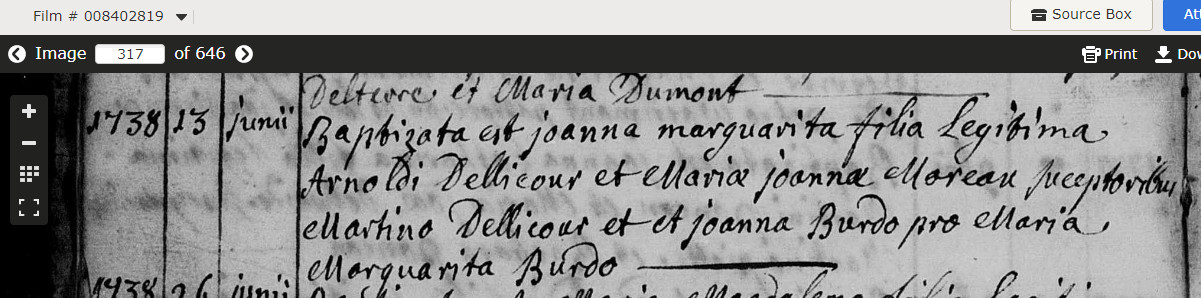 Film # 008402819
Source Box
Image 317 of 646
Print
Delterre et Maria Dumont
1738 13 junii Baptizata est joanna marguarita filia Legitima
Arnoldi Dellicour et Mariæ joannæ Moreau suceptoribus
Martino Dellicour et et joanna Burdo pro Maria
Marguarita Burdo
1738 26 junii